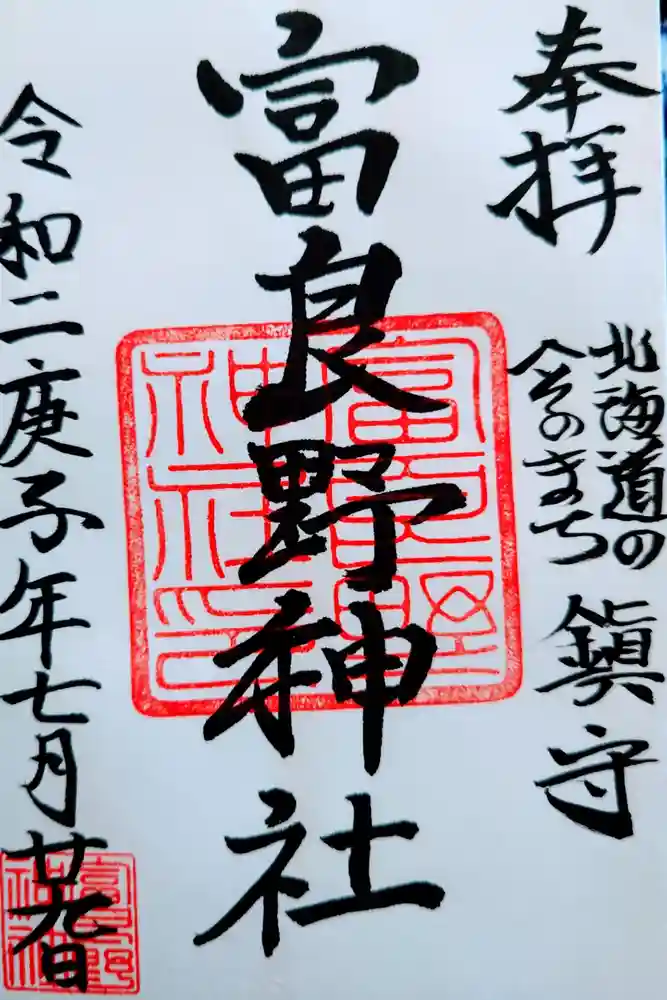 奉拝
北海道の
へそのまち
鎮守
富良野神社
富良野
神社印
令和二庚子年七月廿九日